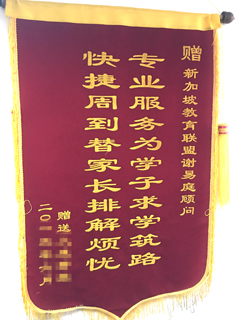 赠 新加坡教育联盟谢易庭顾问
专业服务为学子求学筑路
快捷周到替家长排解烦忧
赠送
二〇一 月